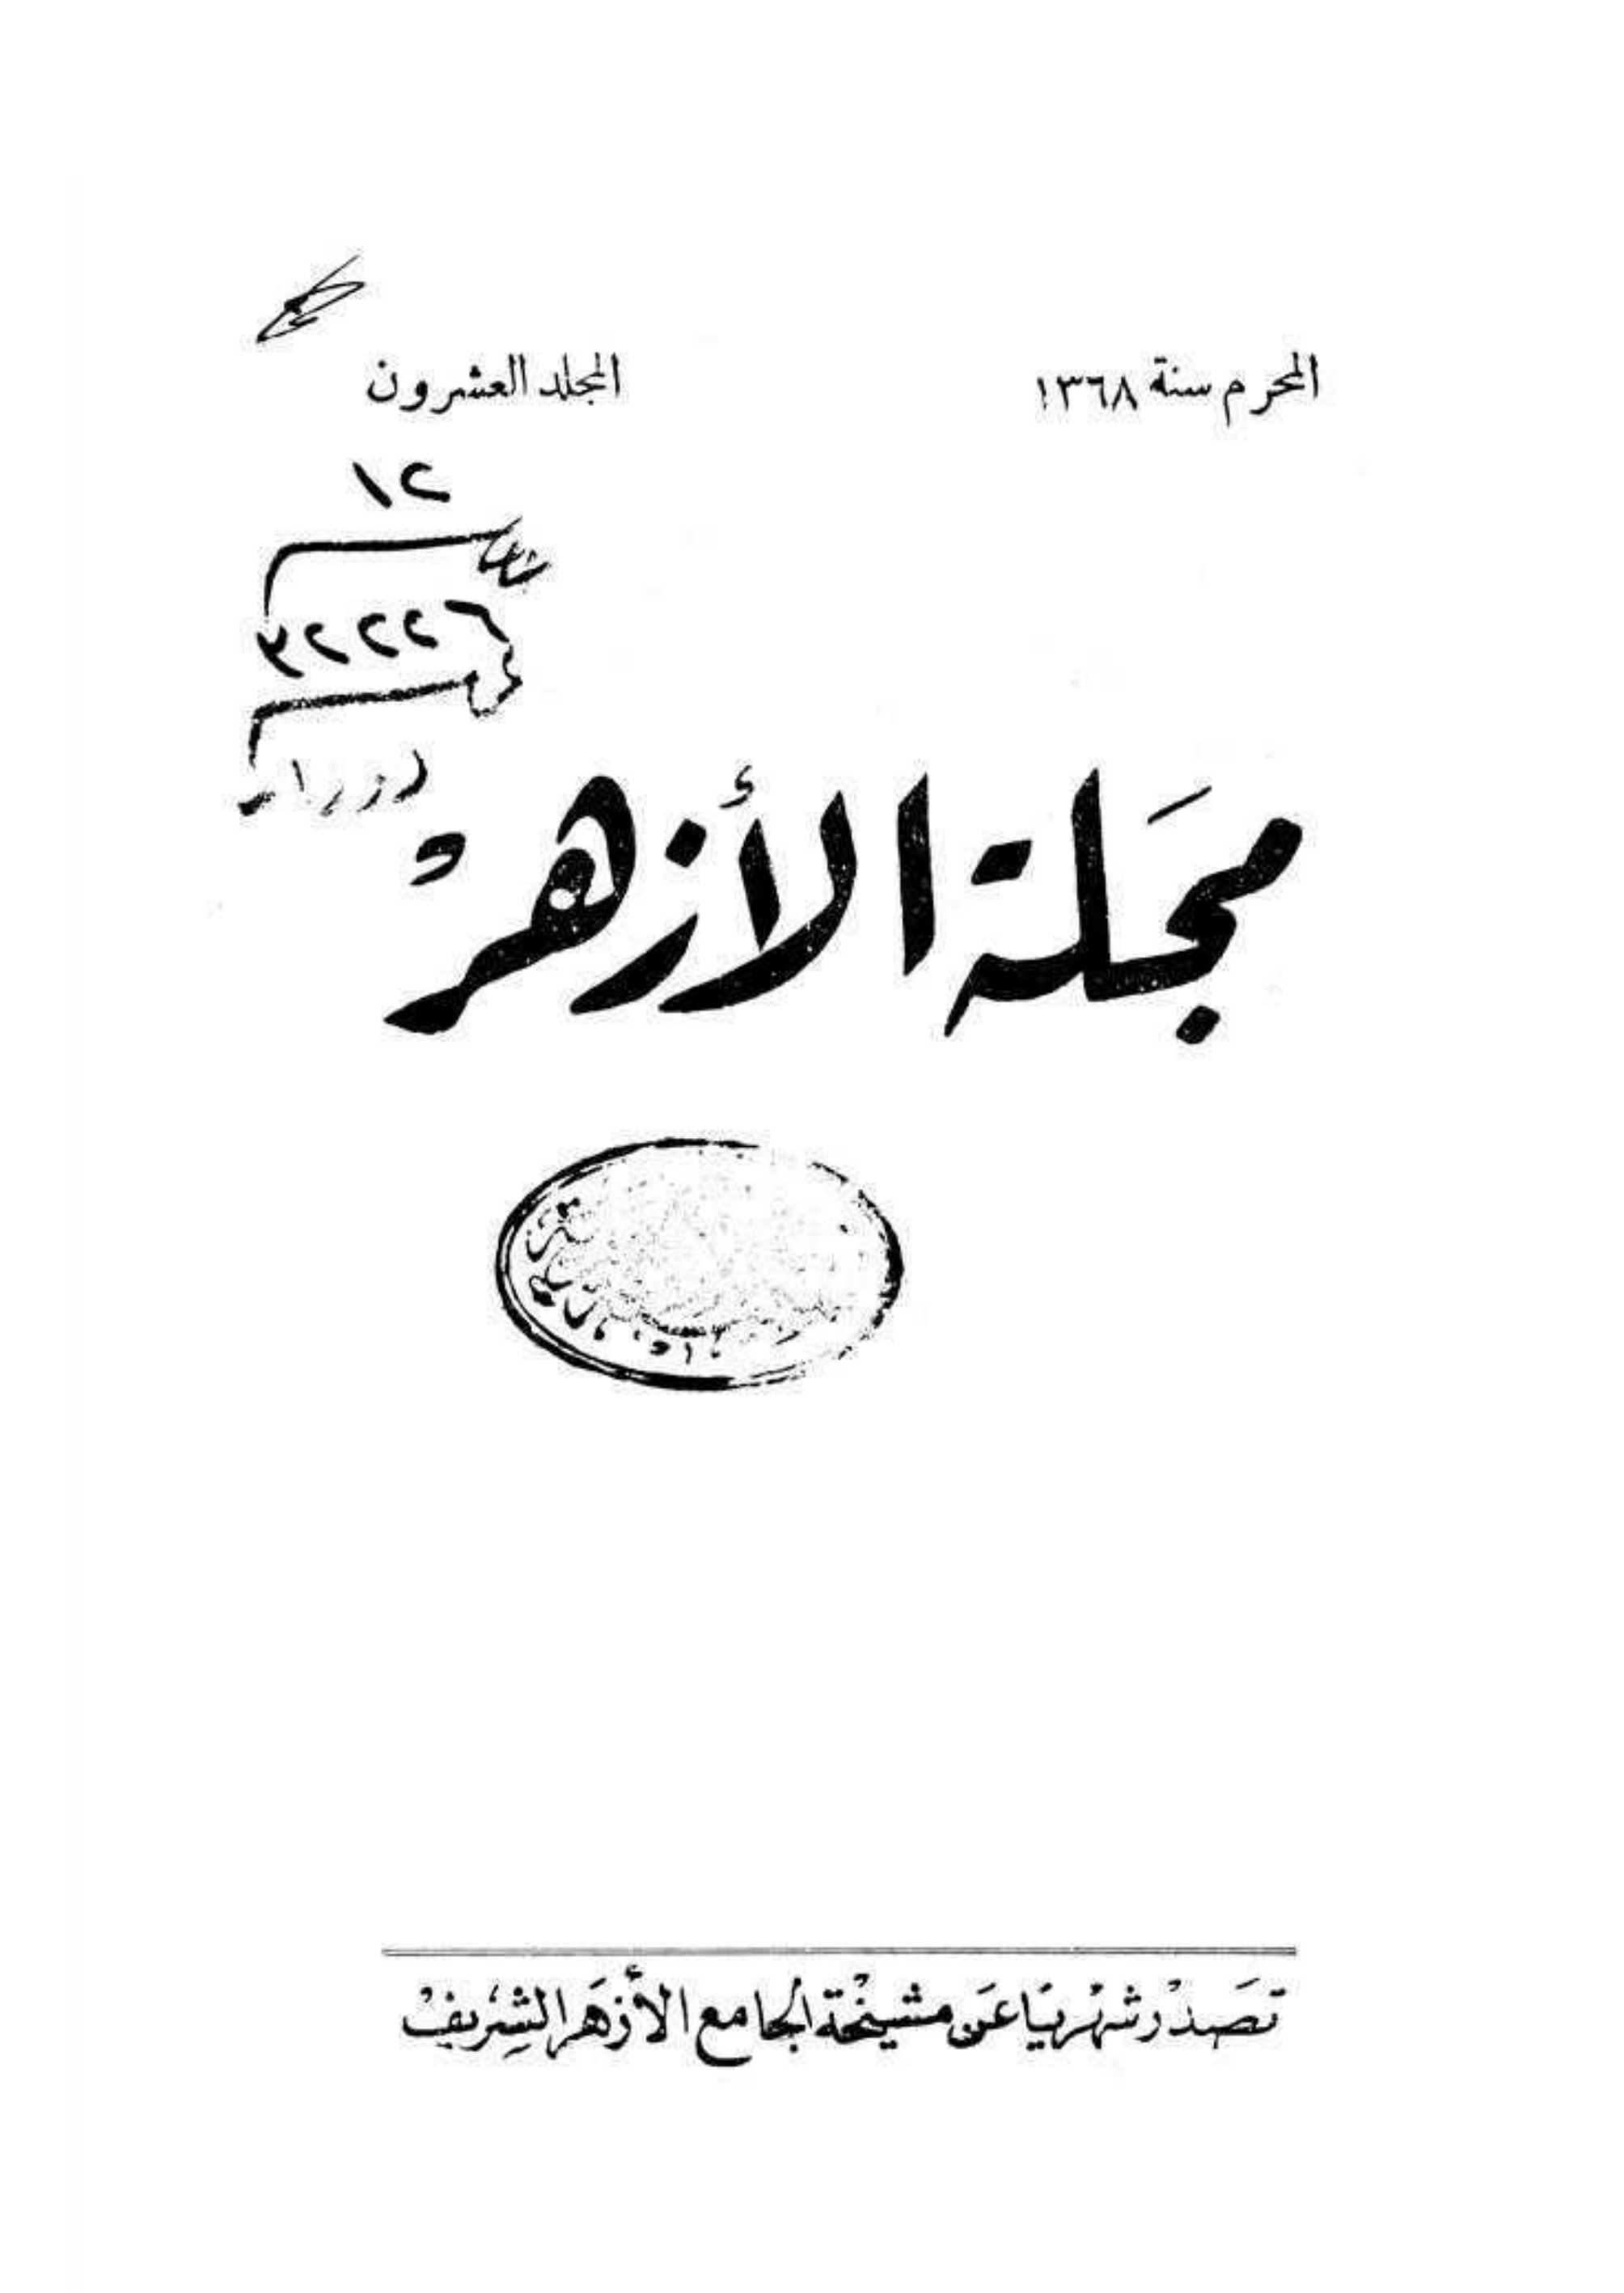 المحرم سنة ١٣٦٨
المجلد العشرون
١٢
٣٢٢٢٦
مجلة الأزهر
تصدر شهريا عن مشيخة الجامع الأزهر الشريف